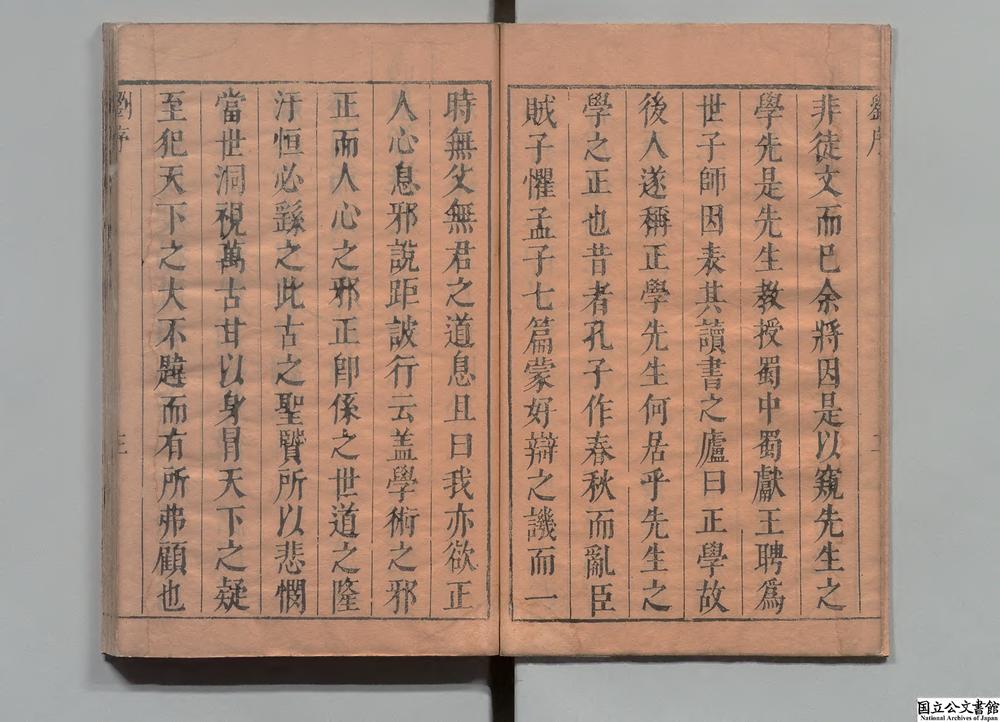 劉序
非徒文而已余將因是以窺先生之
學先是先生教授蜀中蜀獻王聘爲
世子師因表其讀書之廬曰正學故
後人遂稱正學先生何居乎先生之
學之正也昔者孔子作春秋而亂臣
賊子懼孟子七篇蒙好辯之譏而一
時無父無君之道息且曰我亦欲正
人心息邪說距詖行云蓋學術之邪
正而人心之邪正即係之世道之隆
汙恒必繇之此古之聖賢所以悲憫
當世洞視萬古甘以身冒天下之疑
至犯天下之大不韙而有所弗顧也
劉序
国立公文書館
National Archives of Japan